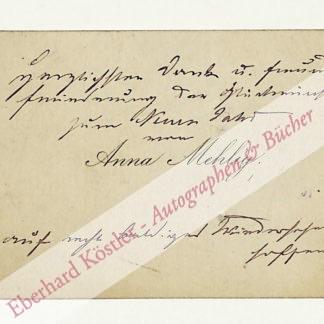 Herzlichsten Dank u. freund
Erwiderung der Glückwünsch
zum Neuen Jahr
von
Anna Mehlig.
auf recht baldiges Wiedersehen
hoffen
Eberhard Köstler - Autographen & Bücher